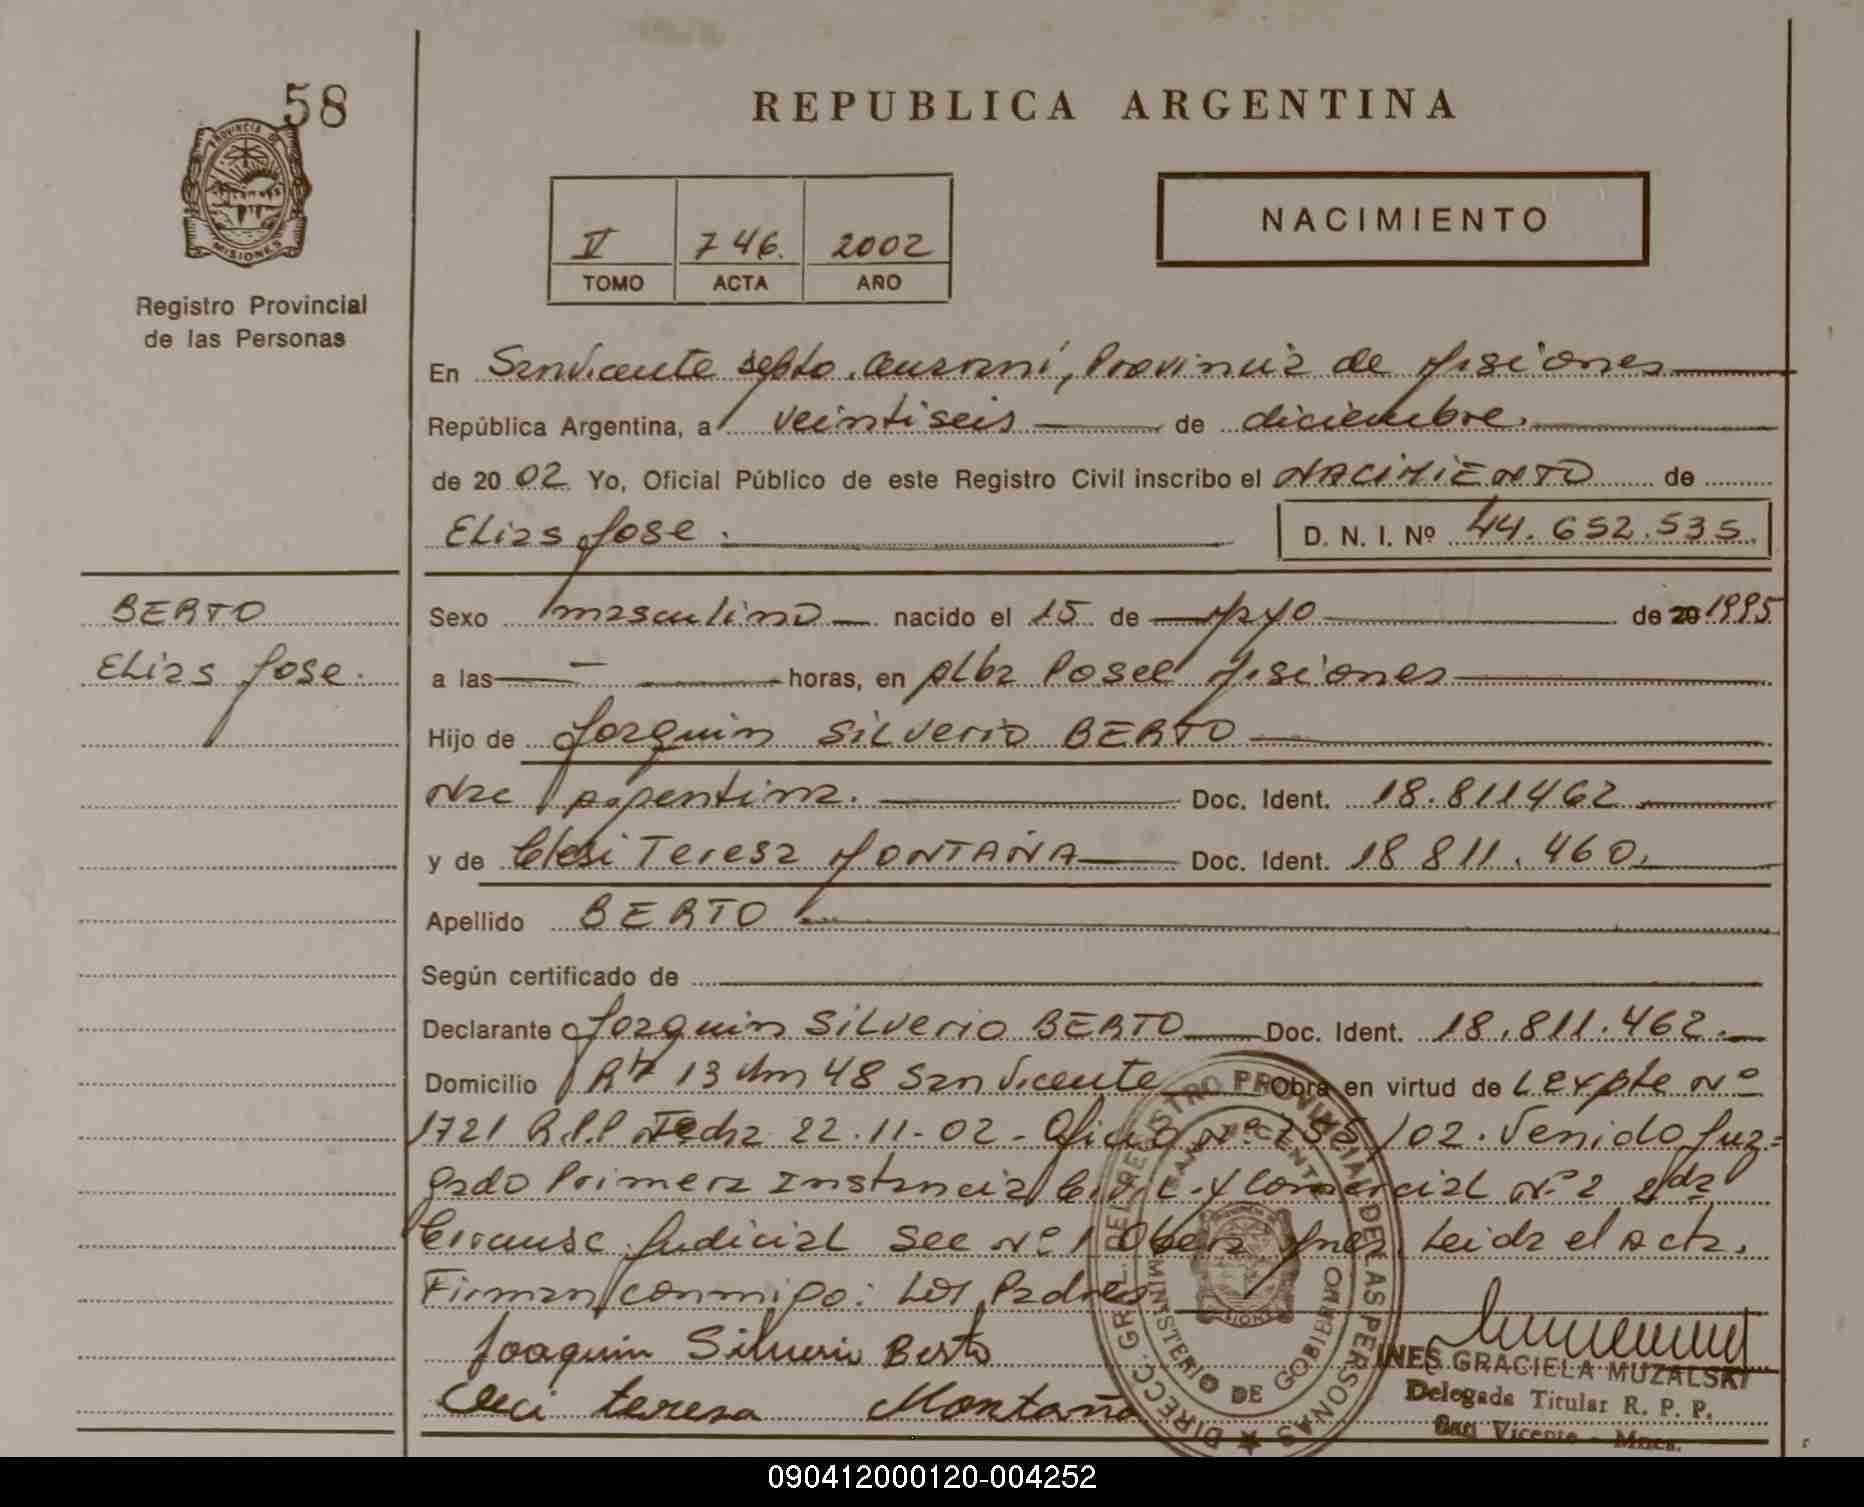 58
PROVINCIA DE
MISIONES
Registro Provincial
de las Personas
REPUBLICA ARGENTINA
V 746. 2002
TOMO ACTA AÑO
NACIMIENTO
En San Vicente Depto. Guaraní, Provincia de Misiones
República Argentina, a veintiseis de diciembre.
de 2002 Yo, Oficial Público de este Registro Civil inscribo el NACIMIENTO de
Elias Jose. D. N. I. Nº 44.652.535.
BERTO
Elias Jose.
Sexo masculino nacido el 15 de Mayo de 20 1995
a las — horas, en Alba Posse Misiones
Hijo de Joaquin Silverio BERTO
Nac Argentina. Doc. Ident. 18.811462
y de Teresa MONTAÑA Doc. Ident. 18 811.460.
Apellido BERTO
Según certificado de
Declarante Joaquin Silverio BERTO Doc. Ident. 18.811.462.
Domicilio Rta 13 Km 48 San Vicente Obra en virtud de Expte Nº
1721 R.P.P Fecha 22.11-02 - Oficio Nº /02. Venido Juz-
gado Primera Instancia Civil y Comercial Nº 2 2da
Circunsc. Judicial Sec Nº 1 Obera Mnes. Leida el acta.
Firman conmigo: Los Padres
Joaquin Silverio Berto
teresa Montaña
DIRECC. GRAL. DEL REGISTRO PROVINCIAL DE LAS PERSONAS
SAN VICENTE
MINISTERIO DE GOBIERNO
INES GRACIELA MUZALSKI
Delegada Titular R. P. P.
San Vicente - Mnes.
090412000120-004252